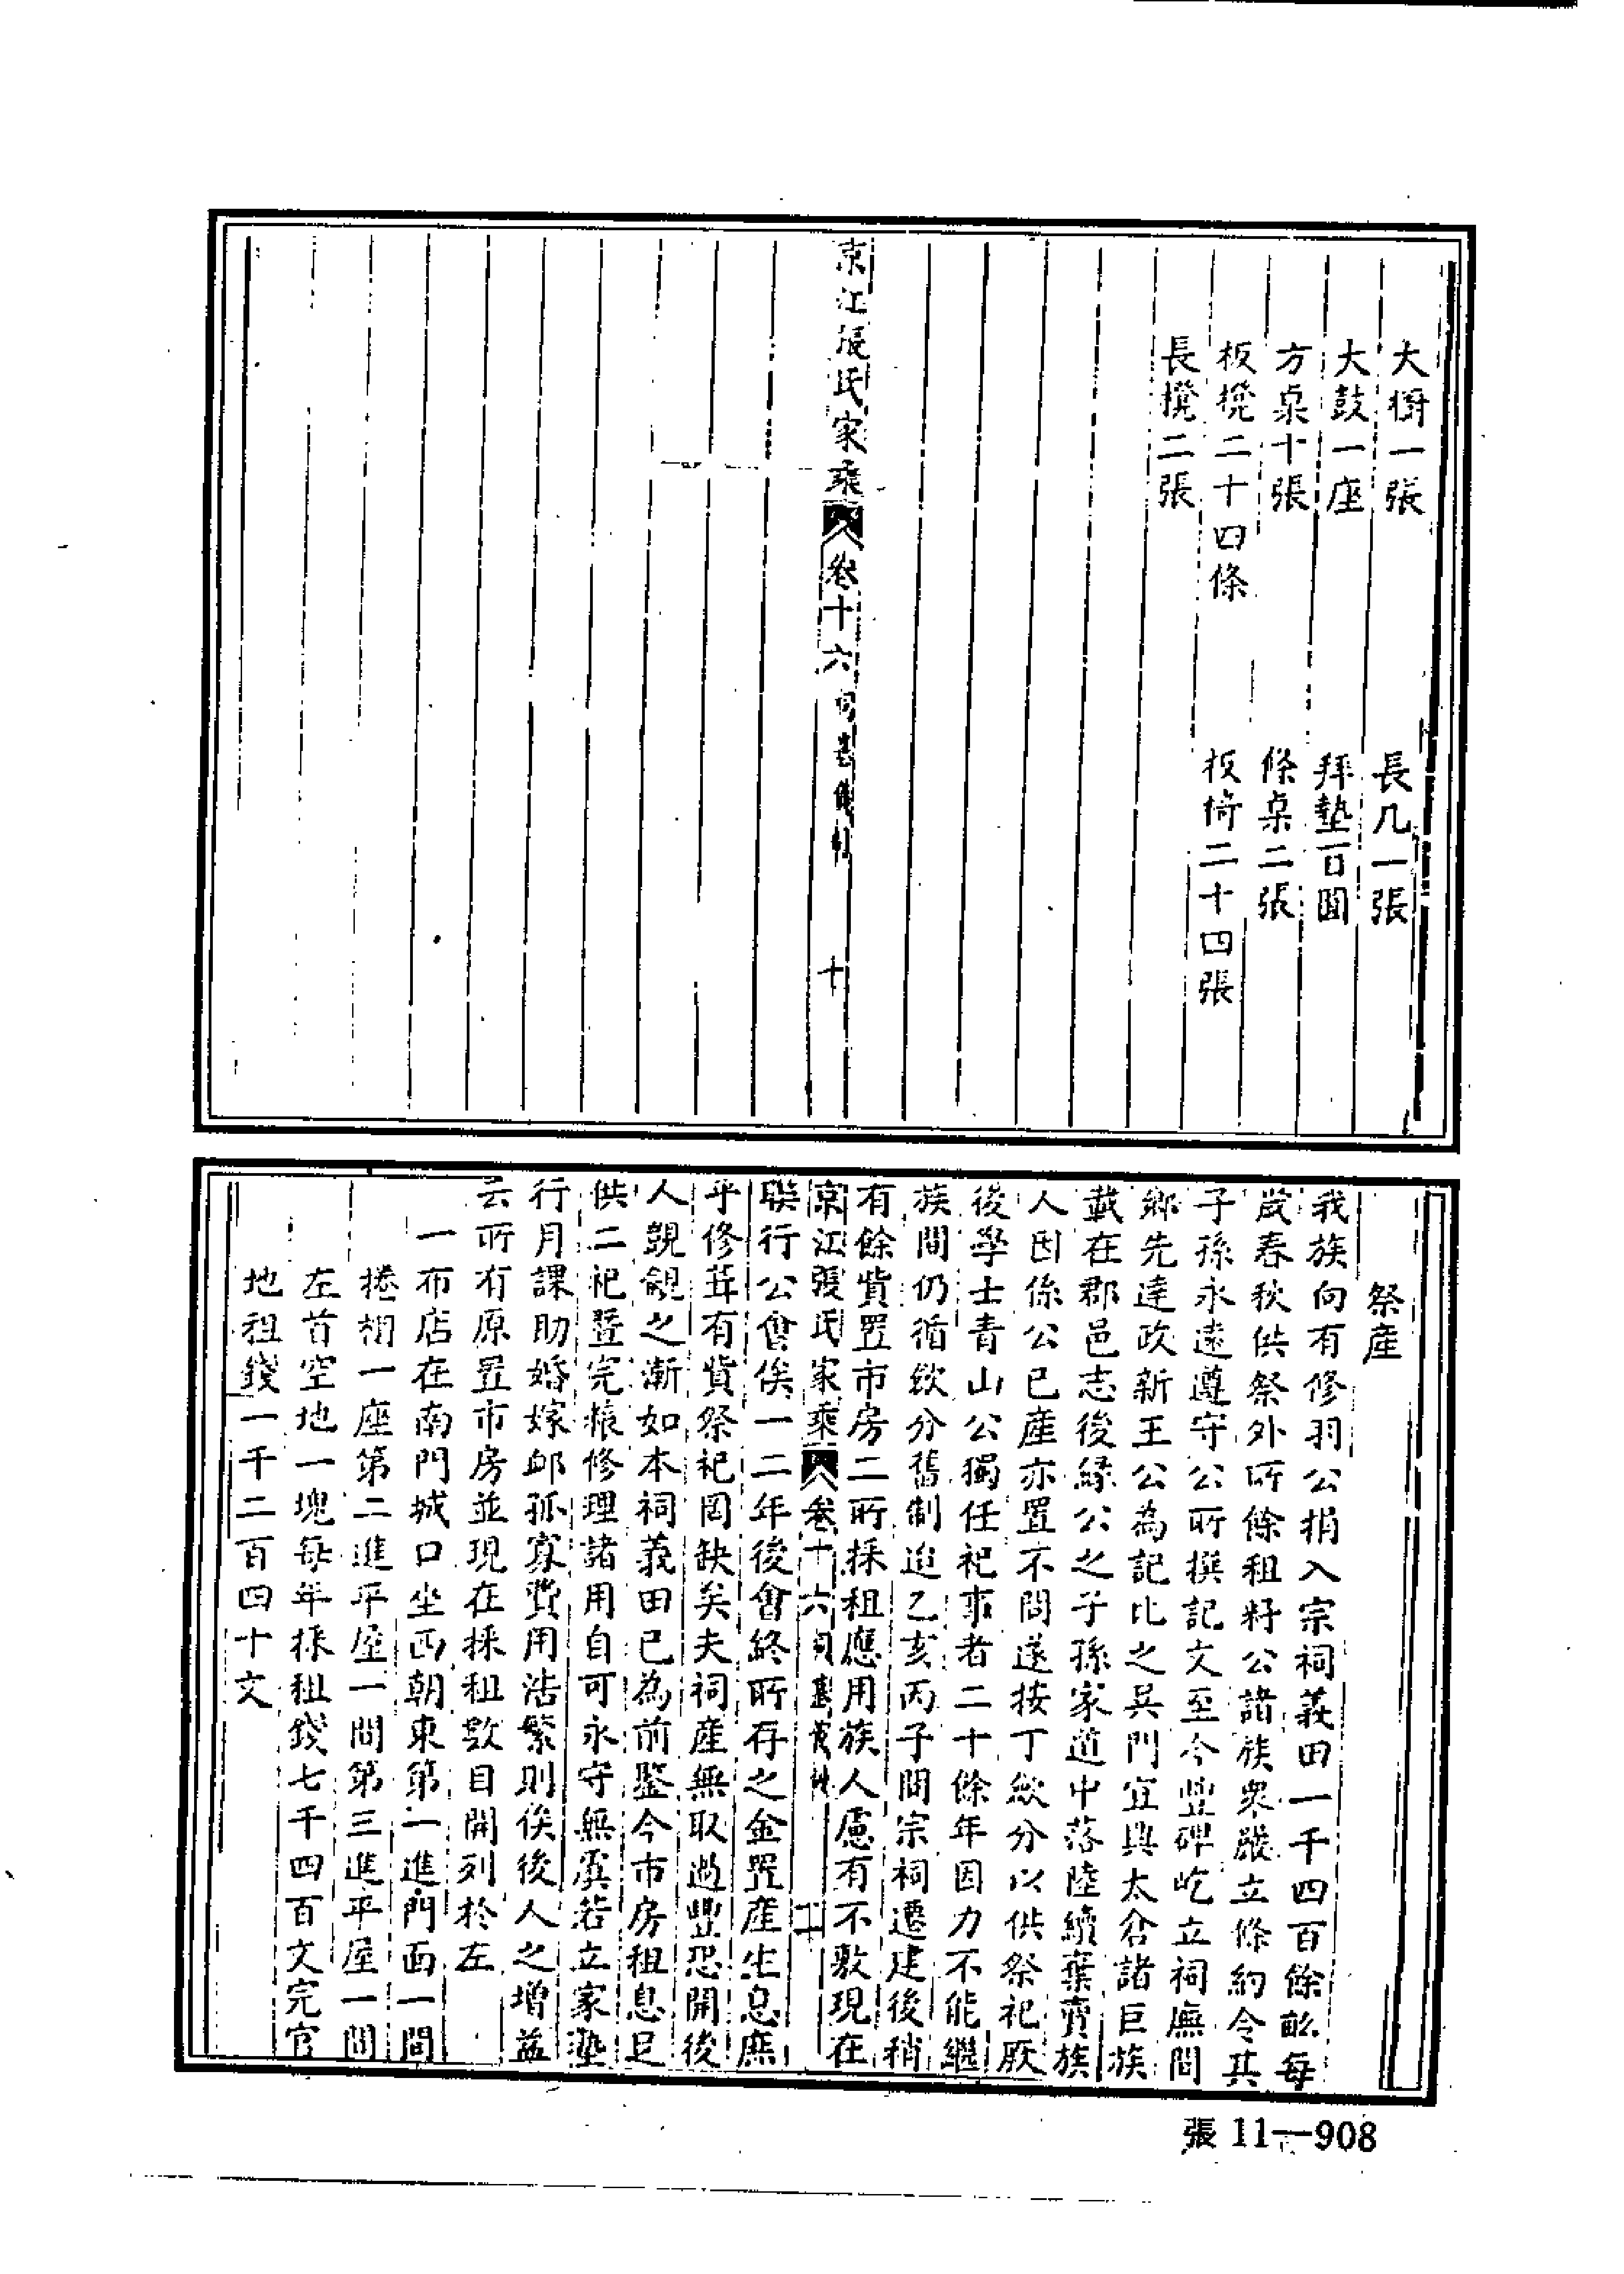 大櫥一張　長几一張
大鼓一座　拜墊百圓
方桌十張　條桌二張
板櫈二十四條　板椅二十四張
長櫈二張
京江張氏家乘　卷十六　十
祭產
我族向有修羽公捐入宗祠義田一千四百餘畝每
歲春秋供祭外所餘租籽公諸族衆嚴立條約令其
子孫永遠遵守公所撰記文至今豐碑屹立祠廡間
鄉先達政新王公為記比之吳門宜興太倉諸巨族
載在郡邑志後緣公之子孫家道中落陸續棄賣族
人因係公己產亦置不問遂按丁歛分以供祭祀厥
後學士青山公獨任祀事者二十餘年因力不能繼
族間仍循歛分舊制迨乙亥丙子間宗祠遷建後稍
有餘貲置市房二所採租應用族人慮有不敷現在
京江張氏家乘　卷十六　十一
聯行公會俟一二年後會終所存之金置產生息庶
乎修葺有貲祭祀罔缺矣夫祠產無取過豐恐開後
人覬覦之漸如本祠義田已為前鑒今市房租息足
供二祀暨完糧修理諸用自可永守無虞若立家塾
行月課助婚嫁卹孤寡費用浩繁則俟後人之增益
云所有原置市房並現在採租數目開列於左
一布店在南門城口坐西朝東第一進門面一間
捲棚一座第二進平屋一間第三進平屋一間
左首空地一塊每年採租錢七千四百文完官
地租錢一千二百四十文
張11—908